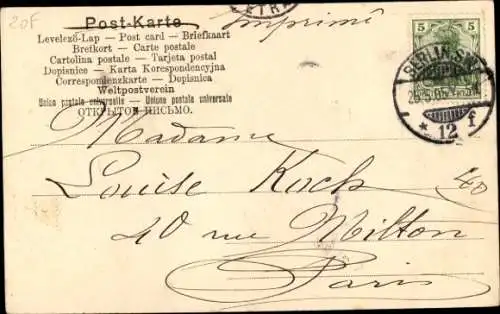 20F
Post-Karte
Imprimé
Levelező-Lap — Post card — Briefkaart
Brefkort — Carte postale
Cartolina postale — Tarjeta postal
Dopisnice — Karta Korespondencyjna
Correspondenzkarte — Dopisnica
Weltpostverein
Union postale universelle — Unione postale universale
ОТКРЫТОЕ ПИСЬМО.
5 5
BERLIN SW
12 f
Madame
Louise Koch
40 rue Milton
Paris